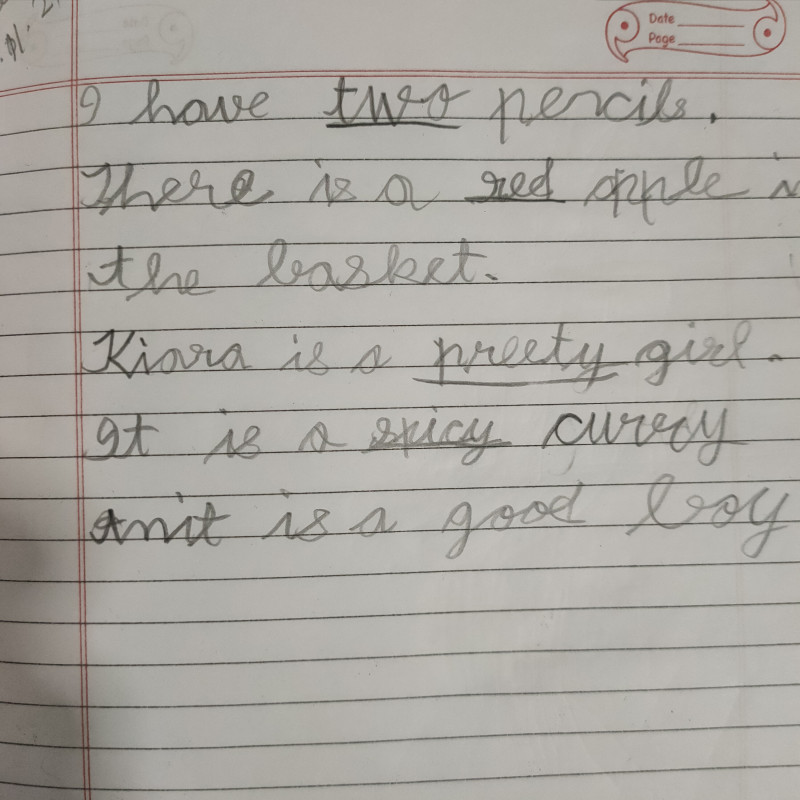 Date
Page
I have two pencils.
There is a red apple in
the basket.
Kiara is a preety girl.
It is a spicy curry
Anit is a good boy